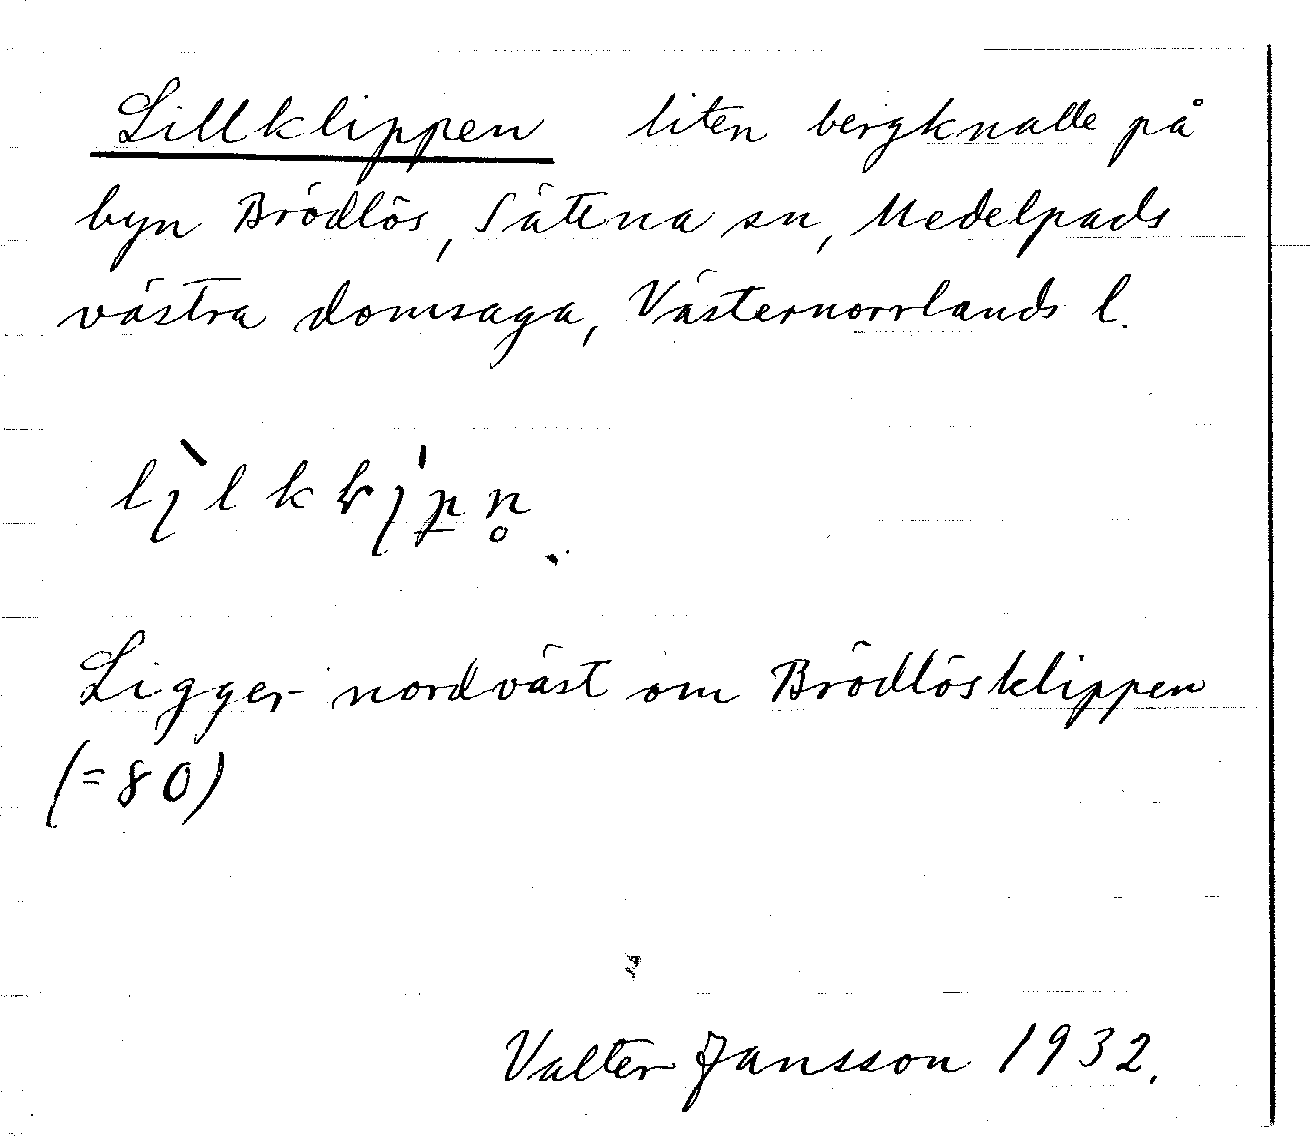 Lillklippen liten bergknalle på
byn Brödlös, Sättna sn, Medelpads
västra domsaga, Västernorrlands l.
Ligger nordväst om Brödlösklippen
(=80)
Valter Jansson 1932.